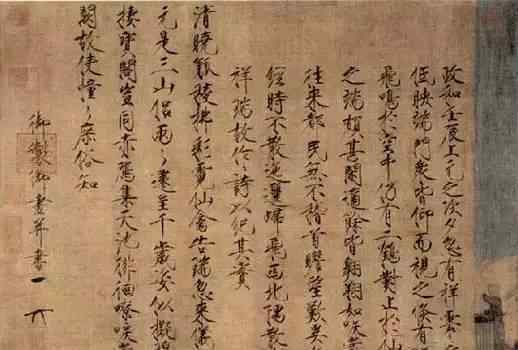 政和壬辰上元之次夕忽有祥雲
低映端門衆皆仰而視之倏有
飛鳴於空中仍有二鶴對止於
之端頗甚閑適餘皆翱翔如
往來都民無不稽首瞻望歎異
經時不散迤邐歸飛西北隅散
祥瑞故作詩以紀其實
清曉觚稜拂彩霓仙禽告瑞忽來儀
元是三山侶兩〻還呈千歲姿似擬
棲寶閣豈同赤鴈集天池徘徊嘹唳
闕故使憧〻庶俗知
御製御畫并書